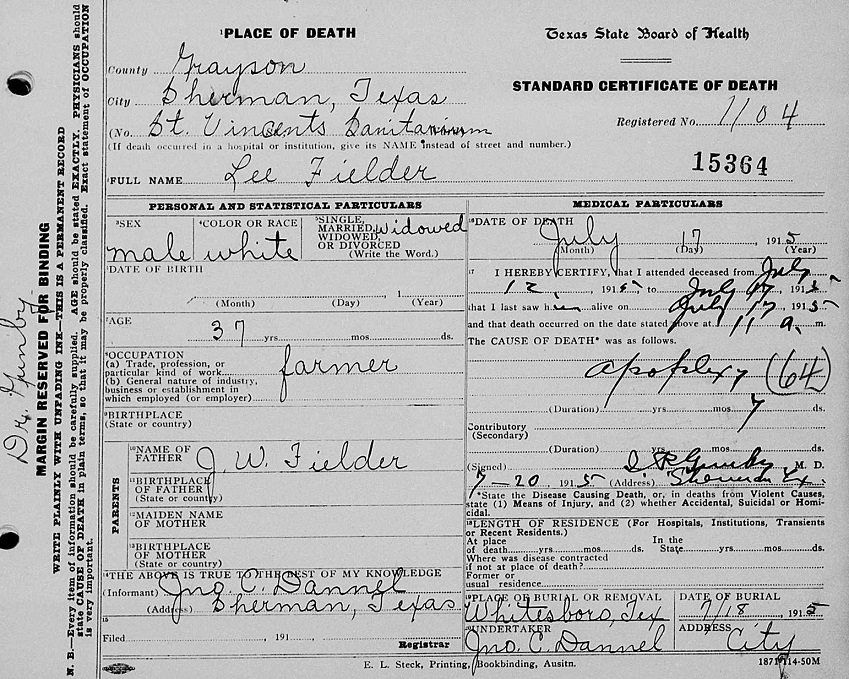 ¹PLACE OF DEATH
Texas State Board of Health
County Grayson
City Sherman, Texas
STANDARD CERTIFICATE OF DEATH
(No. St. Vincents Sanitarium
Registered No. 1104
(If death occurred in a hospital or institution, give its NAME instead of street and number.)
15364
²FULL NAME Lee Fielder
PERSONAL AND STATISTICAL PARTICULARS
³SEX male
⁴COLOR OR RACE white
⁵SINGLE, MARRIED, WIDOWED, OR DIVORCED widowed
(Write the Word.)
⁶DATE OF BIRTH
(Month) (Day) 1 (Year)
⁷AGE
37 yrs. mos. ds.
⁸OCCUPATION
(a) Trade, profession, or
particular kind of work farmer
(b) General nature of industry,
business or establishment in
which employed (or employer)
⁹BIRTHPLACE
(State or country)
PARENTS
¹⁰NAME OF
FATHER J. W. Fielder
¹¹BIRTHPLACE
OF FATHER
(State or country)
¹²MAIDEN NAME
OF MOTHER
¹³BIRTHPLACE
OF MOTHER
(State or country)
¹⁴THE ABOVE IS TRUE TO THE BEST OF MY KNOWLEDGE
(Informant) Jno. C. Dannel
(Address) Sherman, Texas
¹⁵
Filed 191
Registrar
MEDICAL PARTICULARS
¹⁶DATE OF DEATH
July 17 1915
(Month) (Day) (Year)
¹⁷ I HEREBY CERTIFY, that I attended deceased from July
12, 1915, to July 17, 1915
that I last saw him alive on July 17, 1915
and that death occurred on the date stated above at 11 a. m.
The CAUSE OF DEATH* was as follows.
Apoplexy (64)
(Duration) yrs. mos. 7 ds.
Contributory
(Secondary)
(Duration) yrs. mos. ds.
(Signed) Gunby M. D.
7-20 1915 (Address) Sherman Tx.
*State the Disease Causing Death, or, in deaths from Violent Causes,
state (1) Means of Injury, and (2) whether Accidental, Suicidal or Homi-
cidal.
¹⁸LENGTH OF RESIDENCE (For Hospitals, Institutions, Transients
or Recent Residents.)
At place In the
of death yrs. mos. ds. State yrs. mos. ds.
Where was disease contracted
if not at place of death?
Former or
usual residence
¹⁹PLACE OF BURIAL OR REMOVAL
Whitesboro, Tex
DATE OF BURIAL
7/18 1915
²⁰UNDERTAKER
Jno. C. Dannel
ADDRESS
City
E. L. Steck, Printing, Bookbinding, Austin.
1871-114-50M
Dr. Gunby
MARGIN RESERVED FOR BINDING
WRITE PLAINLY WITH UNFADING INK—THIS IS A PERMANENT RECORD
N. B.—Every item of information should be carefully supplied. AGE should be stated EXACTLY. PHYSICIANS should
state CAUSE OF DEATH in plain terms, so that it may be properly classified. Exact statement of OCCUPATION
is very important.